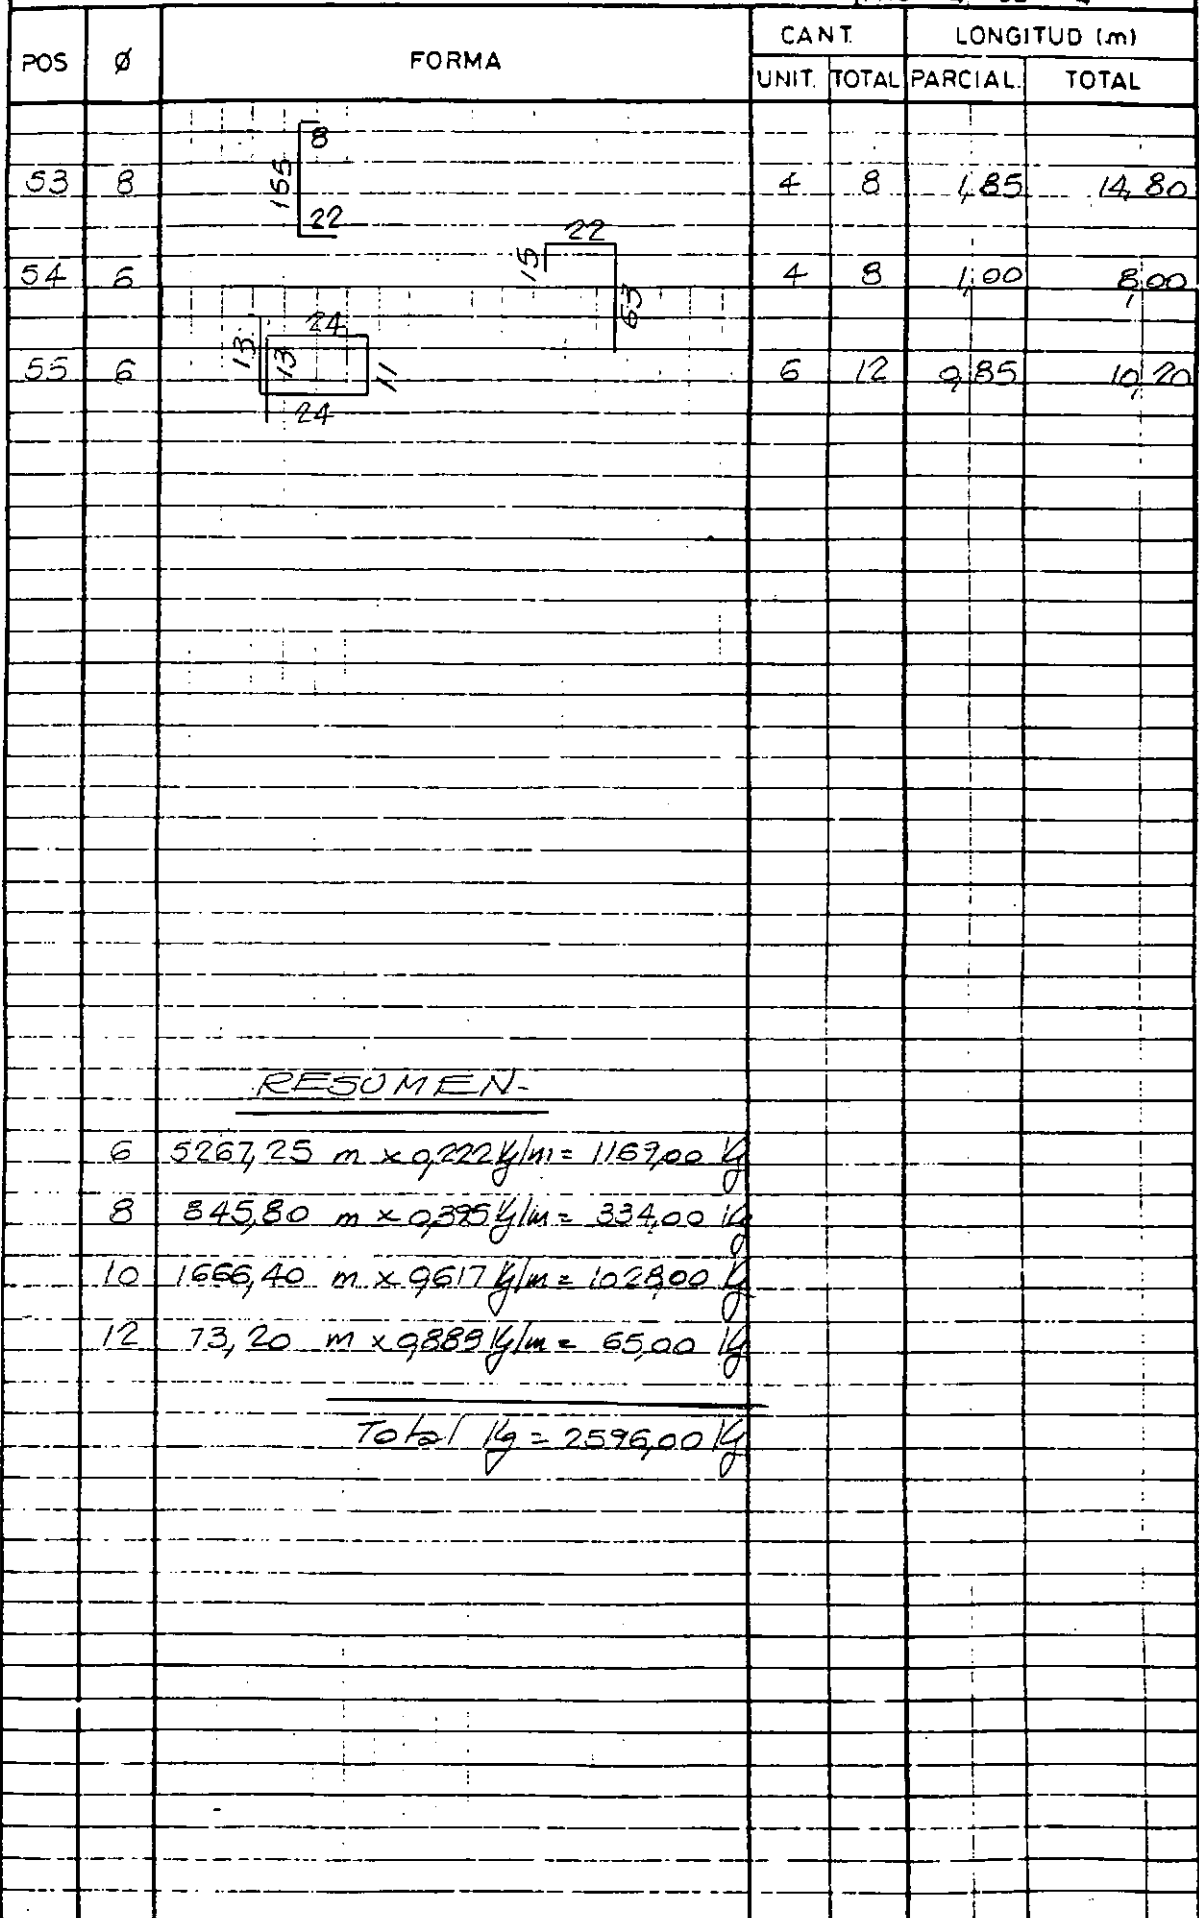 POS Ø FORMA CANT. LONGITUD (m)
UNIT. TOTAL PARCIAL. TOTAL
8
53 8 155 4 8 1,85 14,80
22
22
54 6 15 63 4 8 1,00 8,00
24
55 6 13 13 11 6 12 0,85 10,20
24
RESUMEN-
6 5267,25 m x 0,222 Kg/m = 1169,00 Kg
8 845,80 m x 0,395 Kg/m = 334,00 Kg
10 1666,40 m x 0,617 Kg/m = 1028,00 Kg
12 73,20 m x 0,888 Kg/m = 65,00 Kg
Total Kg = 2596,00 Kg